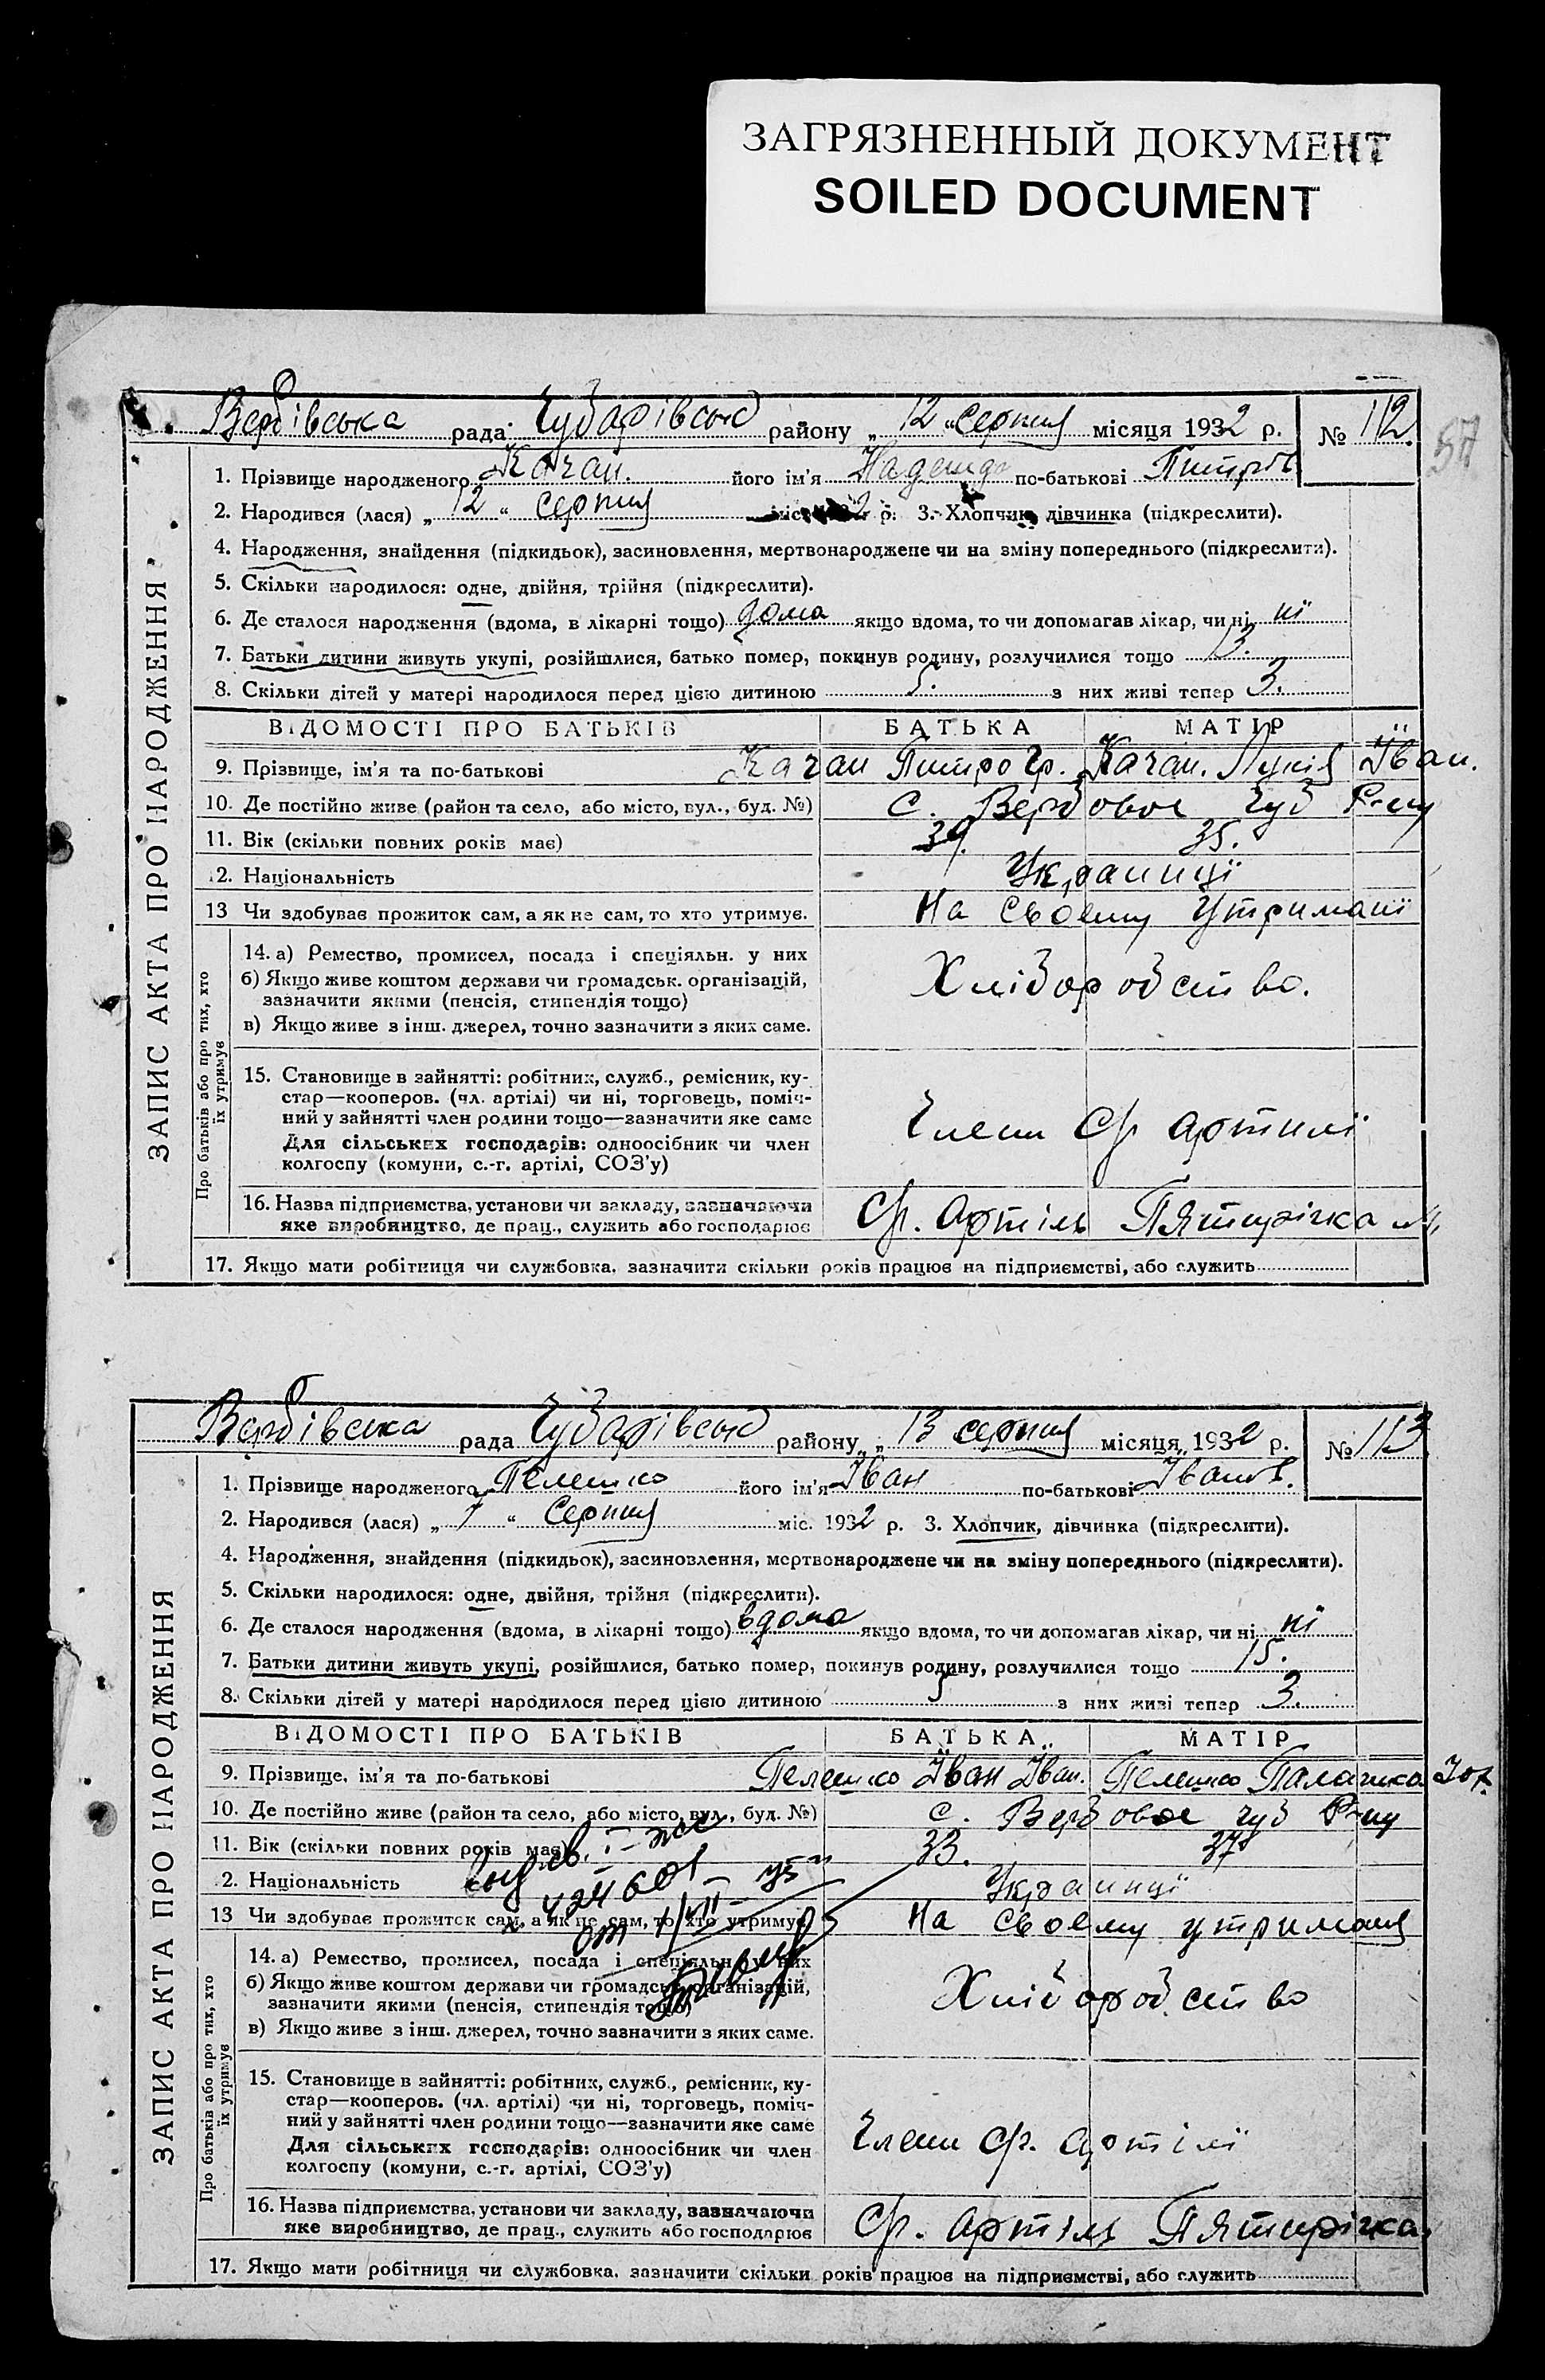 ЗАГРЯЗНЕННЫЙ ДОКУМЕНТ
SOILED DOCUMENT
57
ЗАПИС АКТА ПРО НАРОДЖЕННЯ
Вербівська рада Чубарівськ району „ 12 “ серпня місяця 1932 р. № 112.
1. Прізвище народженого Качан. його ім'я Надежда по-батькові Питров
2. Народився (лася) „ 12 “ Серпня міс. 2 р. 3. Хлопчик, дівчинка (підкреслити).
4. Народження, знайдення (підкидьок), засиновлення, мертвонароджене чи на зміну попереднього (підкреслити).
5. Скільки народилося: одне, двійня, трійня (підкреслити).
6. Де сталося народження (вдома, в лікарні тощо) дома якщо вдома, то чи допомагав лікар, чи ні ні
7. Батьки дитини живуть укупі, розійшлися, батько помер, покинув родину, розлучилися тощо 13.
8. Скільки дітей у матері народилося перед цією дитиною 5. з них живі тепер 3.
ВІДОМОСТІ ПРО БАТЬКІВ БАТЬКА МАТІР
9. Прізвище, ім'я та по-батькові Качан Питро Гр. Качан. Лукія Іван.
10. Де постійно живе (район та село, або місто, вул., буд. №) с. Вербовое Чуб Р-ну
11. Вік (скільки повних років має) 39. 35.
12. Національність Українці
13 Чи здобував прожиток сам, а як не сам, то хто утримує. На своему утримані
Про батьків або про тих, хто їх утримує
14. а) Ремество, промисел, посада і спеціяльн. у них
б) Якщо живе коштом держави чи громадськ. організацій,
зазначити якими (пенсія, стипендія тощо) Хліборобство.
в) Якщо живе з інш. джерел, точно зазначити з яких саме.
15. Становище в зайнятті: робітник, служб., ремісник, ку-
стар—кооперов. (чл. артілі) чи ні, торговець, поміч-
ний у зайнятті член родини тощо—зазначити яке саме
Для сільських господарів: одноосібник чи член
колгоспу (комуни, с.-г. артілі, СОЗ'у) Члени Ср артилі
16. Назва підприємства, установи чи закладу, зазначаючи
яке виробництво, де прац., служить або господарює Ср. Артіль Пятирічка
17. Якщо мати робітниця чи службовка, зазначити скільки років працює на підприємстві, або служить
ЗАПИС АКТА ПРО НАРОДЖЕННЯ
Вербівська рада Чубарівськ району „ 13 серпня місяця 1932 р. № 113
1. Прізвище народженого Пелешко його ім'я Іван по-батькові Іванов.
2. Народився (лася) „ 7 “ Серпня міс. 1932 р. 3. Хлопчик, дівчинка (підкреслити).
4. Народження, знайдення (підкидьок), засиновлення, мертвонароджене чи на зміну попереднього (підкреслити).
5. Скільки народилося: одне, двійня, трійня (підкреслити).
6. Де сталося народження (вдома, в лікарні тощо) вдома якщо вдома, то чи допомагав лікар, чи ні ні
7. Батьки дитини живуть укупі, розійшлися, батько помер, покинув родину, розлучилися тощо 15.
8. Скільки дітей у матері народилося перед цією дитиною 5 з них живі тепер 3.
ВІДОМОСТІ ПРО БАТЬКІВ БАТЬКА МАТІР
9. Прізвище, ім'я та по-батькові Пелешко Іван Іван. Пелешко Палажка
10. Де постійно живе (район та село, або місто, вул., буд. №) с. Вербовое чуб Р-ну
11. Вік (скільки повних років має) 33. 37
12. Національність Українці
13 Чи здобував прожиток сам, а як не сам, то хто утримує. На своему утриманя
424601
от
Про батьків або про тих, хто їх утримує
14. а) Ремество, промисел, посада і спеціяльн. у них
б) Якщо живе коштом держави чи громадськ. організацій,
зазначити якими (пенсія, стипендія тощо) Хліборобство
в) Якщо живе з інш. джерел, точно зазначити з яких саме.
15. Становище в зайнятті: робітник, служб., ремісник, ку-
стар—кооперов. (чл. артілі) чи ні, торговець, поміч-
ний у зайнятті член родини тощо—зазначити яке саме
Для сільських господарів: одноосібник чи член
колгоспу (комуни, с.-г. артілі, СОЗ'у) Члени Ср. артілі
16. Назва підприємства, установи чи закладу, зазначаючи
яке виробництво, де прац., служить або господарює Ср. артіль Пятирічка.
17. Якщо мати робітниця чи службовка, зазначити скільки років працює на підприємстві, або служить